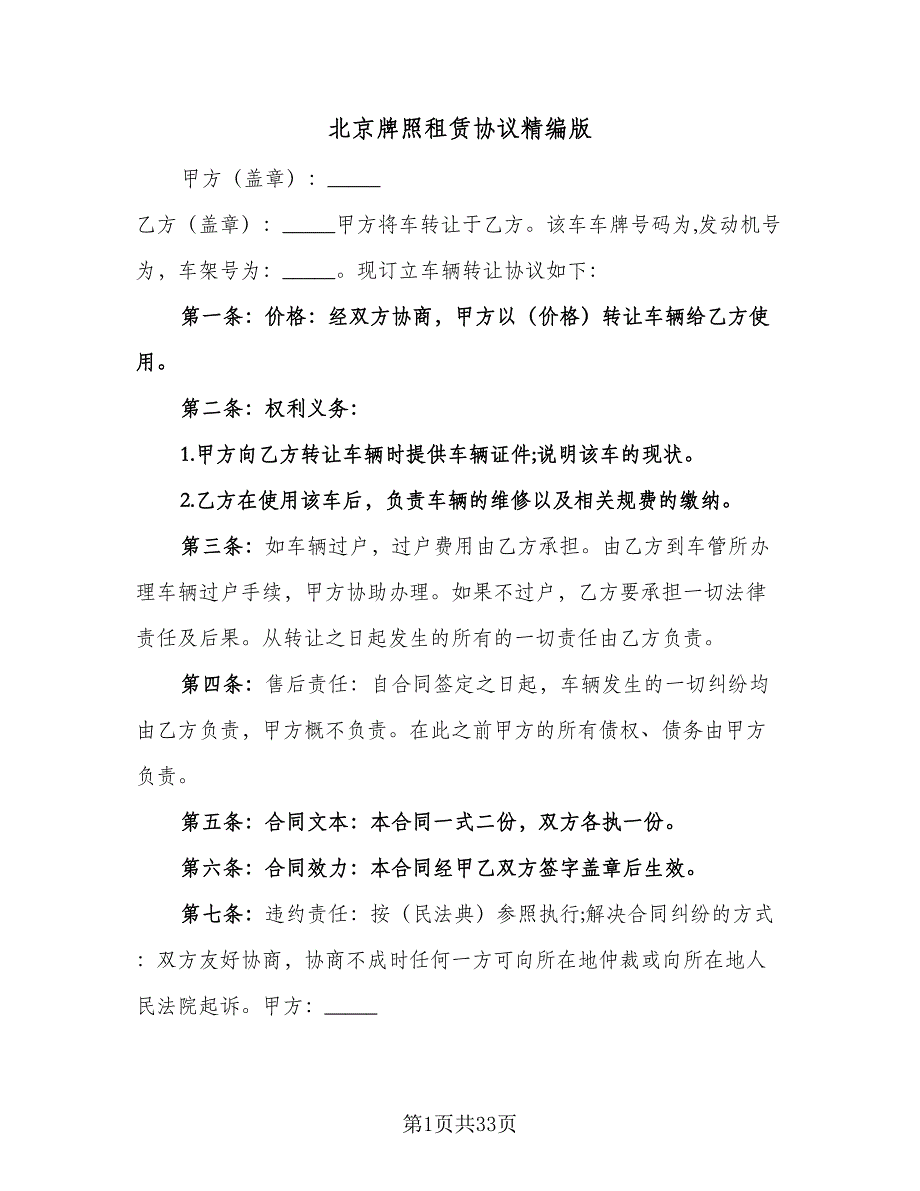 北京牌照租赁协议精编版
甲方（盖章）：_____
乙方（盖章）：_____甲方将车转让于乙方。该车车牌号码为,发动机号
为，车架号为：_____。现订立车辆转让协议如下：
第一条：价格：经双方协商，甲方以（价格）转让车辆给乙方使
用。
第二条：权利义务：
1.甲方向乙方转让车辆时提供车辆证件;说明该车的现状。
2.乙方在使用该车后，负责车辆的维修以及相关规费的缴纳。
第三条：如车辆过户，过户费用由乙方承担。由乙方到车管所办
理车辆过户手续，甲方协助办理。如果不过户，乙方要承担一切法律
责任及后果。从转让之日起发生的所有的一切责任由乙方负责。
第四条：售后责任：自合同签定之日起，车辆发生的一切纠纷均
由乙方负责，甲方概不负责。在此之前甲方的所有债权、债务由甲方
负责。
第五条：合同文本：本合同一式二份，双方各执一份。
第六条：合同效力：本合同经甲乙双方签字盖章后生效。
第七条：违约责任：按（民法典）参照执行;解决合同纠纷的方式
：双方友好协商，协商不成时任何一方可向所在地仲裁或向所在地人
民法院起诉。甲方：_____
第1页共33页